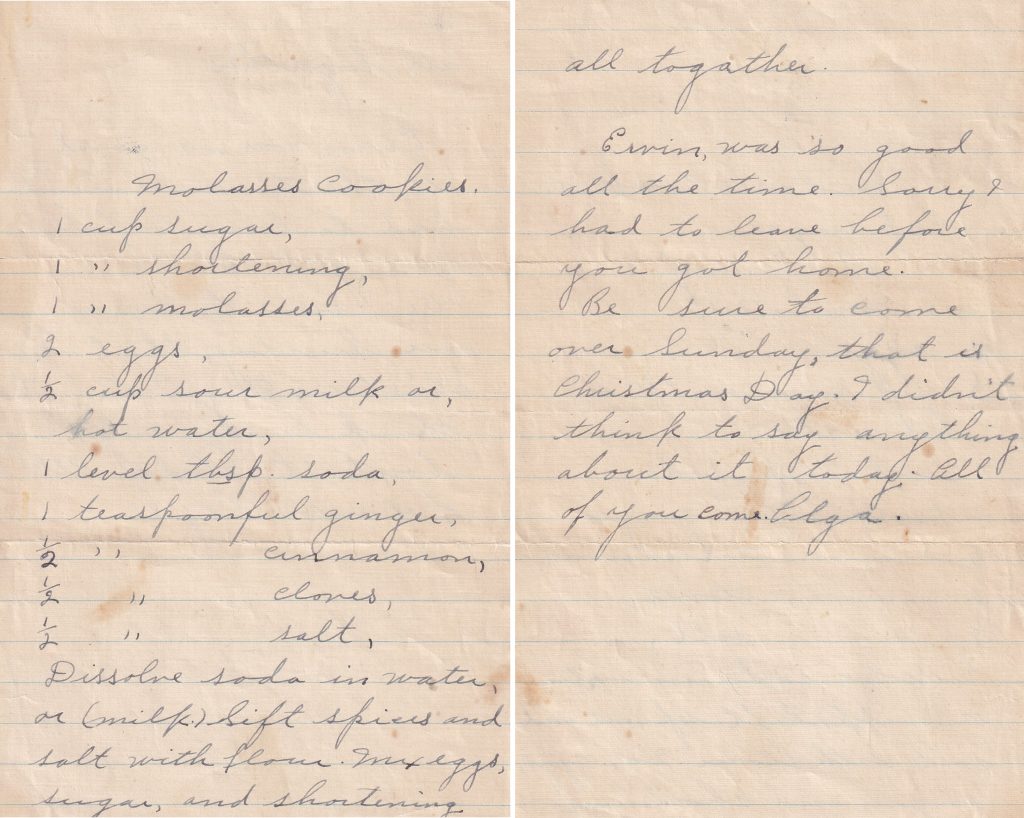 Molasses Cookies.
1 cup sugar,
1 " shortening,
1 " molasses,
2 eggs,
½ cup sour milk or,
hot water,
1 level tbsp. soda,
1 teaspoonful ginger,
½ " cinnamon,
½ " cloves,
½ " salt,
Dissolve soda in water,
or (milk.) Sift spices and
salt with flour. Mix eggs,
sugar, and shortening
all togather.
Ervin, was so good
all the time. Sorry I
had to leave before
you got home.
Be sure to come
over Sunday, that is
Christmas Day. I didn't
think to say anything
about it today. All
of you come. Olga.